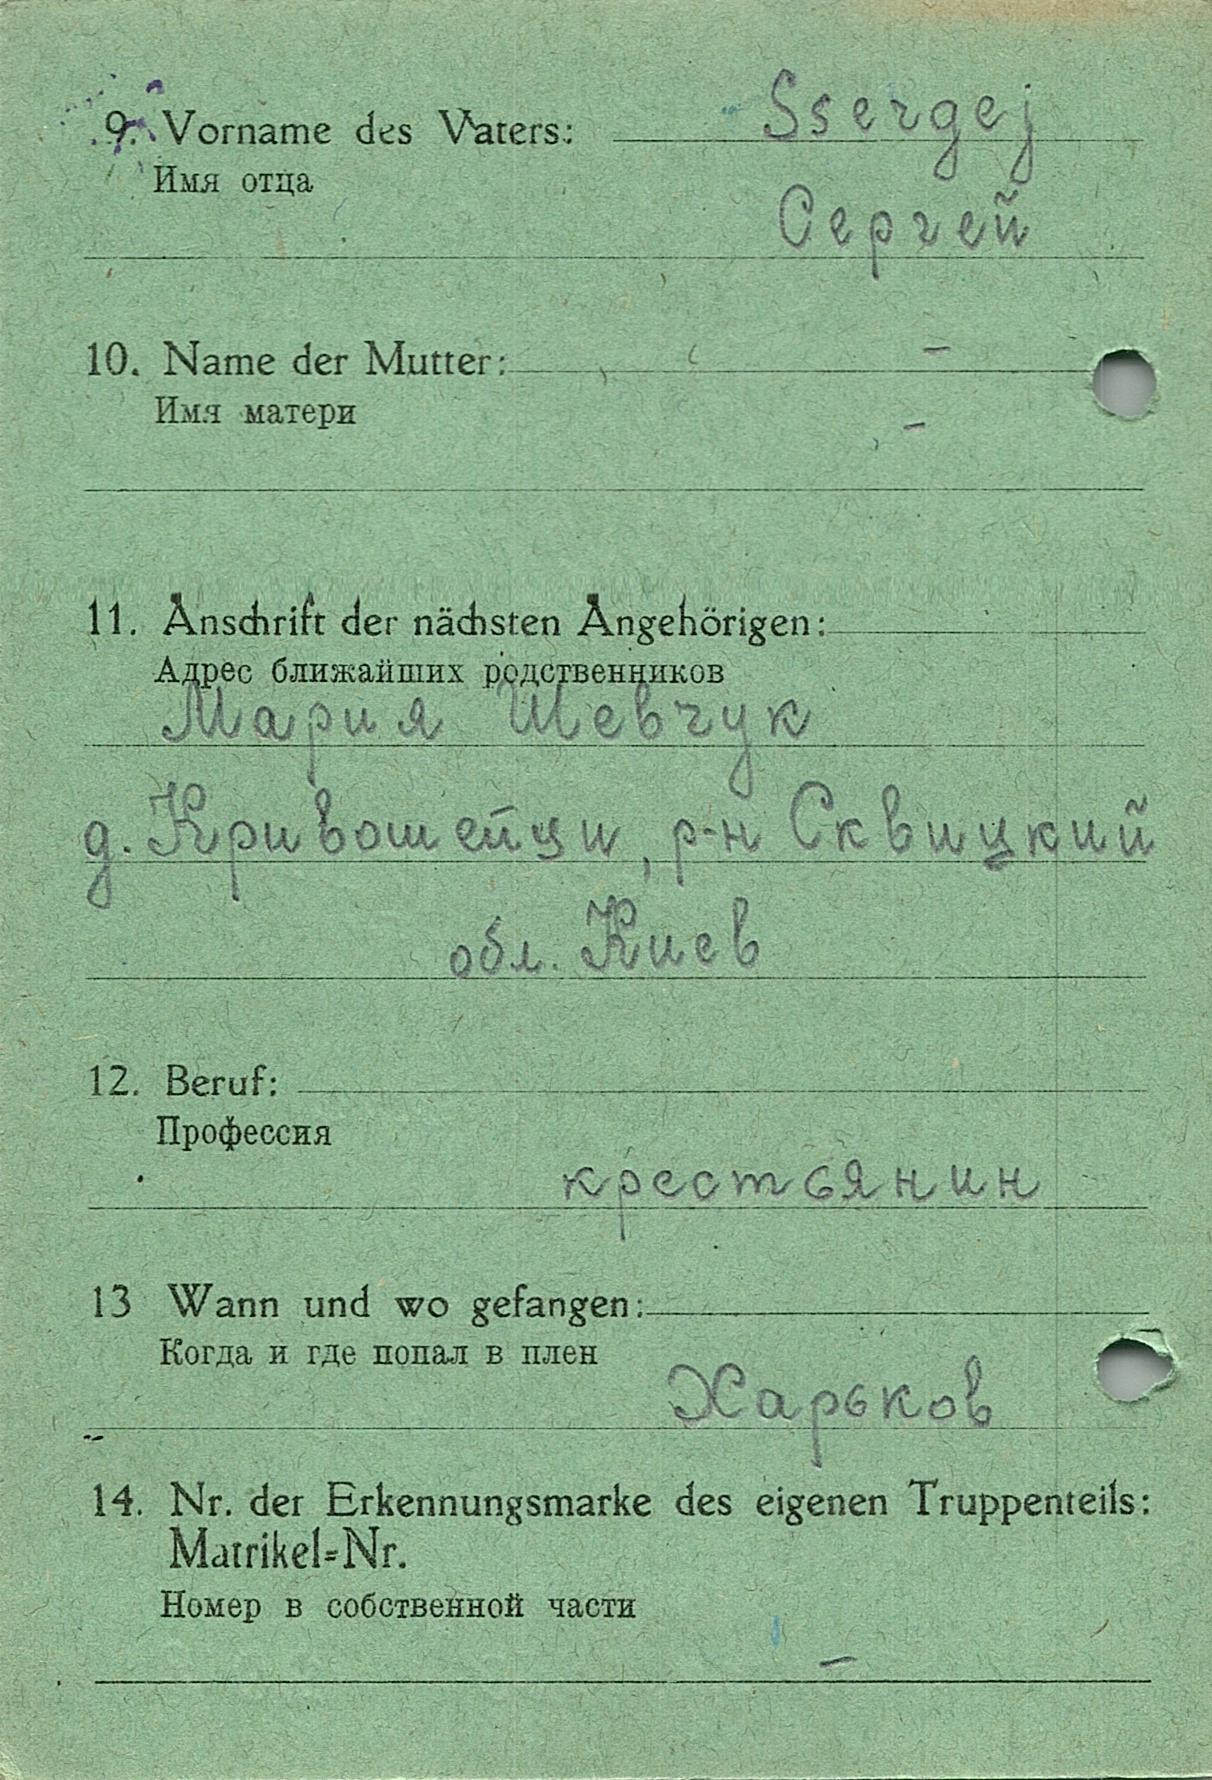 9. Vorname des Vaters: Ssergej
Имя отца
Сергей
10. Name der Mutter: –
Имя матери –
11. Anschrift der nächsten Angehörigen:
Адрес ближайших родственников
Мария Шевчук
д. Кривошейци, р-н Сквицкий
обл. Киев
12. Beruf:
Профессия
крестьянин
13 Wann und wo gefangen:
Когда и где попал в плен
Харьков
14. Nr. der Erkennungsmarke des eigenen Truppenteils:
Matrikel-Nr.
Номер в собственной части
–